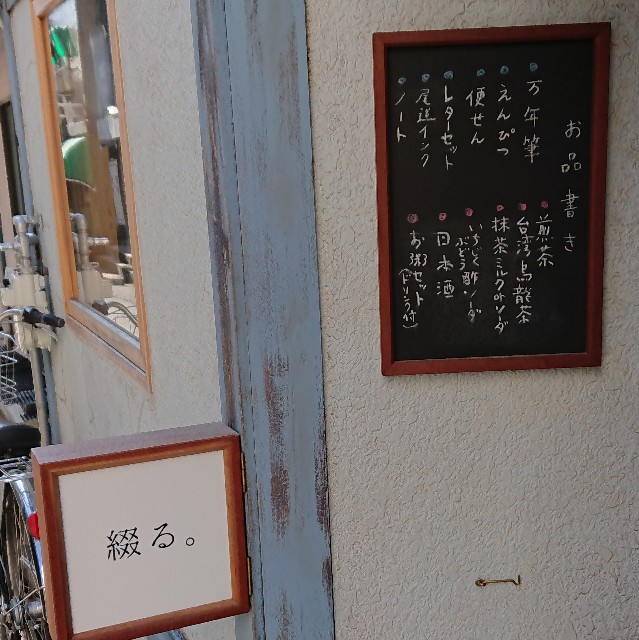 お品書き
万年筆
えんぴつ
便せん
レターセット
尾道インク
ノート
煎茶
台湾烏龍茶
抹茶ミルクorソダ
いちじく酢ソーダ
ぶどう
日本酒
お粥セット
(ドリンク付)
綴る。